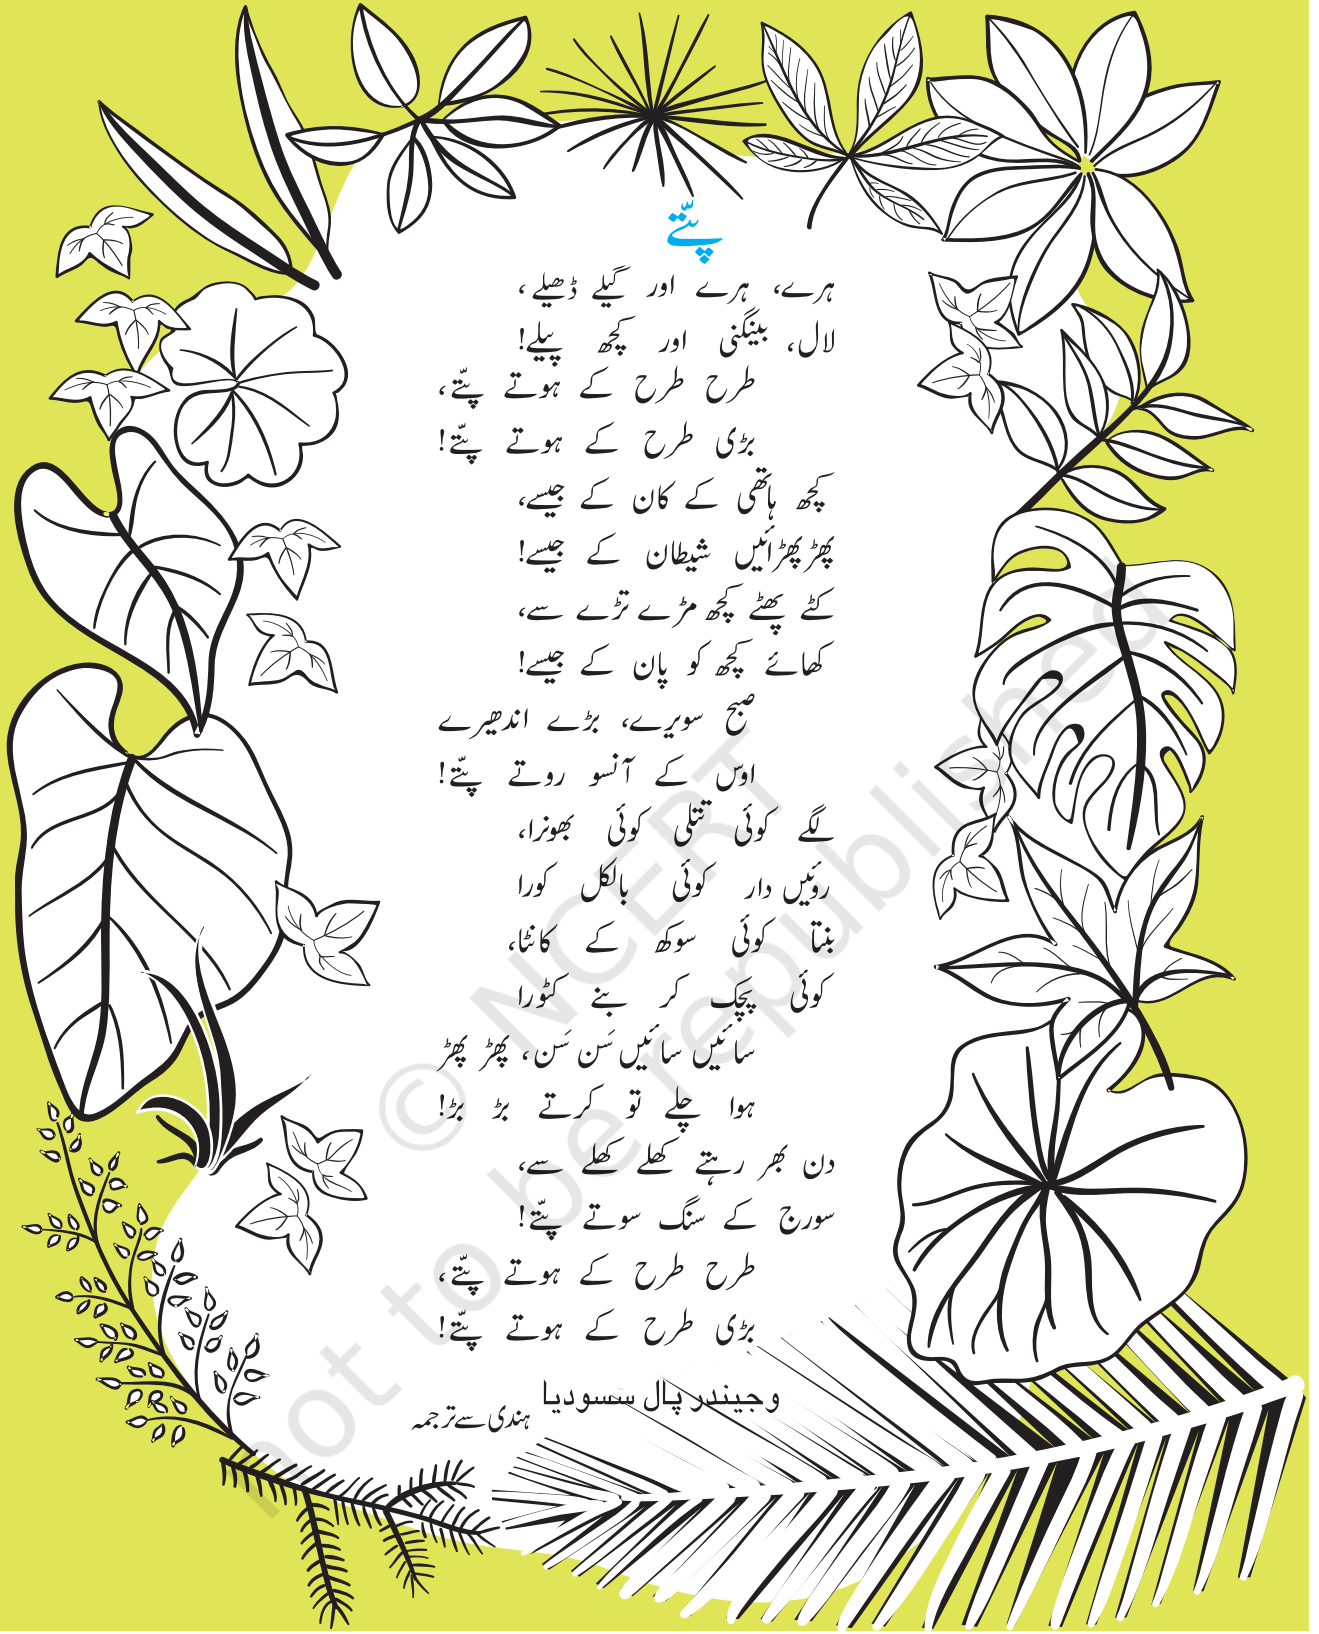 پتّے
ہرے، ہرے اور گیلے ڈھیلے،
لال، بینگنی اور کچھ پیلے!
طرح طرح کے ہوتے پتّے،
بڑی طرح کے ہوتے پتّے!
کچھ ہاتھی کے کان کے جیسے،
پھڑپھڑائیں شیطان کے جیسے!
کٹے پھٹے کچھ مڑے تڑے سے،
کھائے کچھ کو پان کے جیسے!
صبح سویرے، بڑے اندھیرے
اوس کے آنسو روتے پتّے!
لگے کوئی تتلی کوئی بھونرا،
روئیں دار کوئی بالکل کورا
بنتا کوئی سوکھ کے کانٹا،
کوئی پچک کر بنے کٹورا
سائیں سائیں سَن سَن، پھڑ پھڑ
ہوا چلے تو کرتے بڑ بڑ!
دن بھر رہتے کھلے کھلے سے،
سورج کے سنگ سوتے پتّے!
طرح طرح کے ہوتے پتّے،
بڑی طرح کے ہوتے پتّے!
وجیندر پال سسودیا
ہندی سے ترجمہ
© NCERT
not to be republished